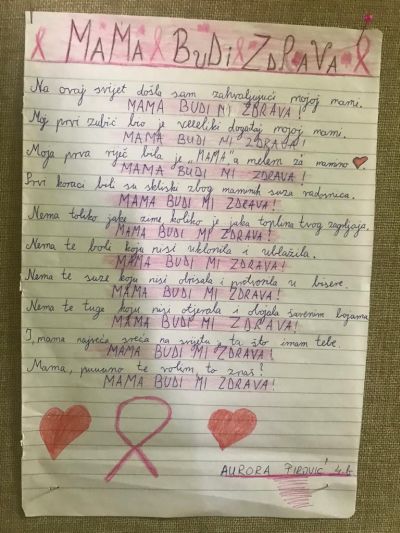 MAMA BUDI ZDRAVA
Na ovaj svijet došla sam zahvaljujući mojoj mami.
MAMA BUDI MI ZDRAVA!
Moj prvi zubić bio je veeeliki događaj mojoj mami.
MAMA BUDI MI ZDRAVA!
Moja prva riječ bila je „MAMA" a melem za mamino
MAMA BUDI MI ZDRAVA!
Prvi koraci bili su skliski zbog maminih suza radosnica.
MAMA BUDI MI ZDRAVA!
Nema toliko jake zime koliko je jaka toplina tvog zagrljaja.
MAMA BUDI MI ZDRAVA!
Nema te boli koju nisi uklonila i ublažila.
MAMA BUDI MI ZDRAVA!
Nema te suze koju nisi obrisala i pretvorila u bisere.
MAMA BUDI MI ZDRAVA!
Nema te tuge koju nisi otjerala i obojala šarenim bojama
MAMA BUDI MI ZDRAVA!
I, mama najveća sreća na svijetu je ta što imam tebe.
MAMA BUDI MI ZDRAVA!
Mama, puuuno te volim to znaš?
MAMA BUDI MI ZDRAVA!
AURORA PIROVIĆ 4.b